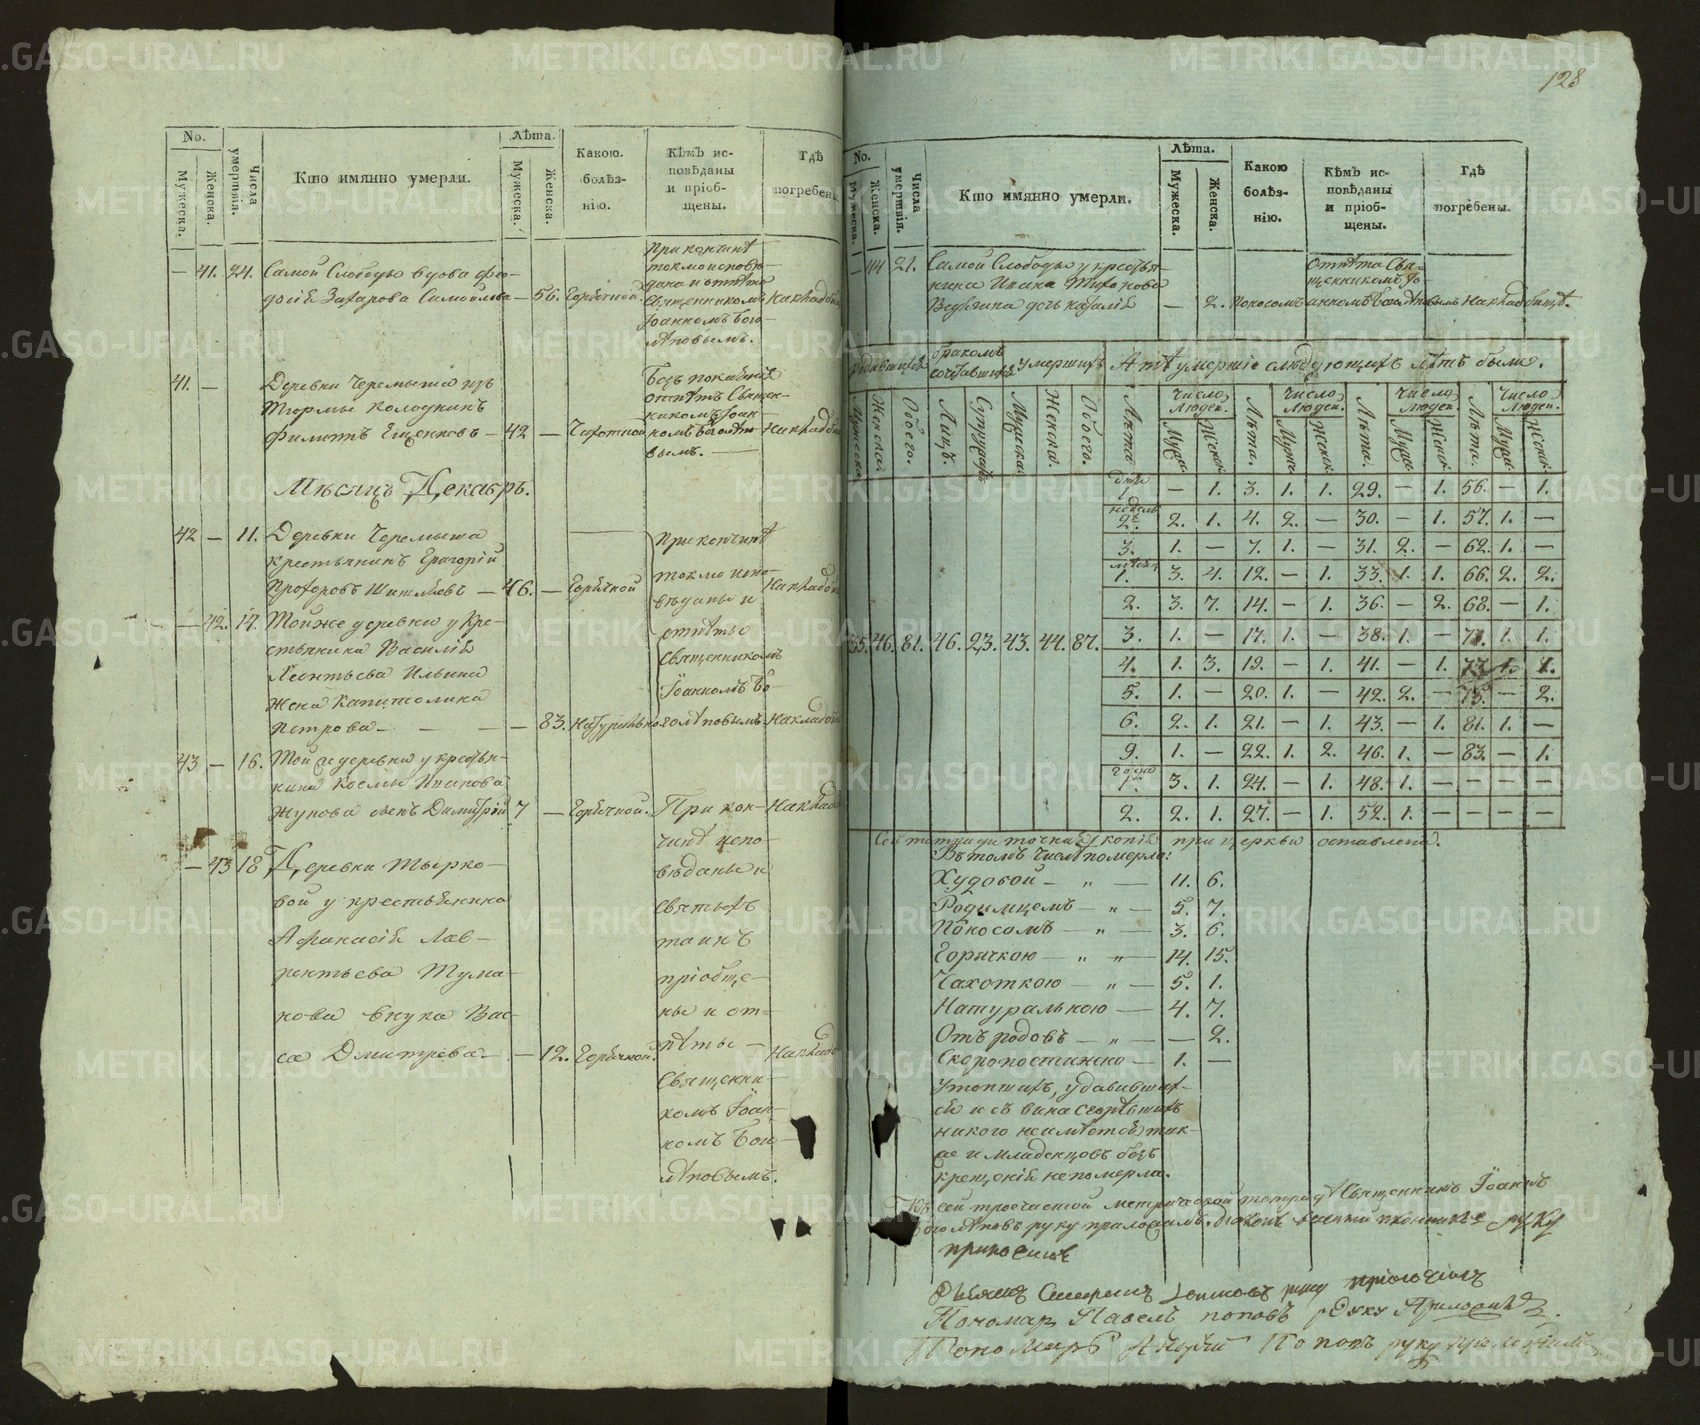 128
No.
Мужеска.
Женска.
Числа умертвiя.
Кто имянно умерли.
Лѣта.
Мужеска.
Женска.
Какою болѣз-нiю.
Кѣмъ ис-повѣданы и прiоб-щены.
Гдѣ погребены.
— 41. 24. Самой Слободы вдова Фео-
досiя Захарова Самойлова — 56. Горячкой
При кончинѣ
токмо исповѣ-
дана и отпѣта
Священникомъ
Iоанномъ Бого-
лѣповымъ.
41. —
Деревни Черемыша изъ
Тюрмы колодникъ
Филиппъ Ещенковъ — 42 — Чахоткой
Безъ покаянiя
отпѣтъ Священ-
никомъ Iоан-
номъ Боголѣп-
вымъ.
Мѣсяцъ Декабрь.
42 — 11. Деревни Черемыша
крестьянинъ Григорiй
Прохоровъ Шишляевъ — 46. — Горячкой
При кончинѣ
токмо испо-
вѣданы и
отпѣты
Священникомъ
Iоанномъ Бо-
голѣповымъ.
— 42. 14. Той же деревни у кре-
стьянина Василiя
Леонтьева Ильина
жена Капитолина
Петрова — — — 83. Натурально
43 — 16. Той же деревни у крестья-
нина Космы Иванова
Жукова сынъ Димитрiй 7 — Горячкой.
При кон-
чинѣ испо-
вѣданы и
святыхъ
таинъ
прiобще-
ны и от-
пѣты —
Священни-
комъ Iоан-
номъ Бого-
лѣповымъ.
— 43 18 Деревни Тырко-
вой у крестьянина
Афанасiя Лав-
рентьева Тума-
нова внука Вас-
са Дмитрiева — — 12. Горячкой.
No.
Мужеска.
Женска.
Числа умертвiя.
Кто имянно умерли.
Лѣта.
Мужеска.
Женска.
Какою болѣз-нiю.
Кѣмъ ис-повѣданы и прiоб-щены.
Гдѣ погребены.
— 44 21. Самой Слободы у крестья-
нина Ивана Тихонова
дочь Наталiя — 2. Поносомъ
Отпѣта Свя-
щенникомъ Iо-
анномъ Боголѣповымъ На кладбищѣ.
Родившихся
бракомъ сочетавшихся
умершихъ
А тѣ умершiе слѣдующихъ лѣтъ были.
Мужеска. Женска. Обоего. Лицъ. Супружествъ. Мужеска. Женска. Обоего.
Лѣта. Число людей. Муж. Женск. Лѣта. Число людей. Муж. Женск. Лѣта. Число людей. Муж. Женск. Лѣта. Число людей. Муж. Женск.
35. 46. 81. 46. 23. 43. 44. 87.
дня 1 — 1. 3. 1. 1. 29. — 1. 56. — 1.
недѣль 2. 2. 1. 4. 2. — 30. — 1. 57. 1. —
3. 1. — 7. 1. — 31. 2. — 62. 1. —
мѣсяц 1. 3. 4. 12. — 1. 33. 1. 1. 66. 2. 2.
2. 3. 7. 14. — 1. 36. — 2. 68. — 1.
3. 1. — 17. 1. — 38. 1. — 71. 1. 1.
4. 1. 3. 19. — 1. 41. — 1. 73. 1. 1.
5. 1. — 20. 1. — 42. 2. — 75. — 2.
6. 2. 1. 21. — 1. 43. — 1. 81. 1. —
9. 1. — 22. 1. 2. 46. 1. — 83. — 1.
года 1. 3. 1. 24. — 1. 48. 1. — — — —
2. 2. 1. 27. — 1. 52. 1. — — — —
Сей тетради точная копiя при церкви оставлена.
Въ томъ числѣ померло:
Худобой — „ — 11. 6.
Родимцемъ — „ — 5. 7.
Поносомъ — „ — 3. 6.
Горячкою — „ „ — 14. 15.
Чахоткою — „ — 5. 1.
Натуральною — 4. 7.
Отъ родовъ — „ — — 2.
Скоропостижно — 1. —
Утопшихъ, удавивших-
ся и съ вина сгорѣвшихъ
никого неимѣется, так-
же и младенцовъ безъ
крещенiя непомерло.
Къ сей троечастной метрической тетради Священникъ Iоаннъ
Боголѣповъ руку приложилъ. Дiаконъ руку
приложилъ
Дьячекъ руку приложилъ
Пономарь Павелъ Поповъ руку Приложилъ.
Пономарь Андрей Поповъ руку приложилъ
METRIKI.GASO-URAL.RU